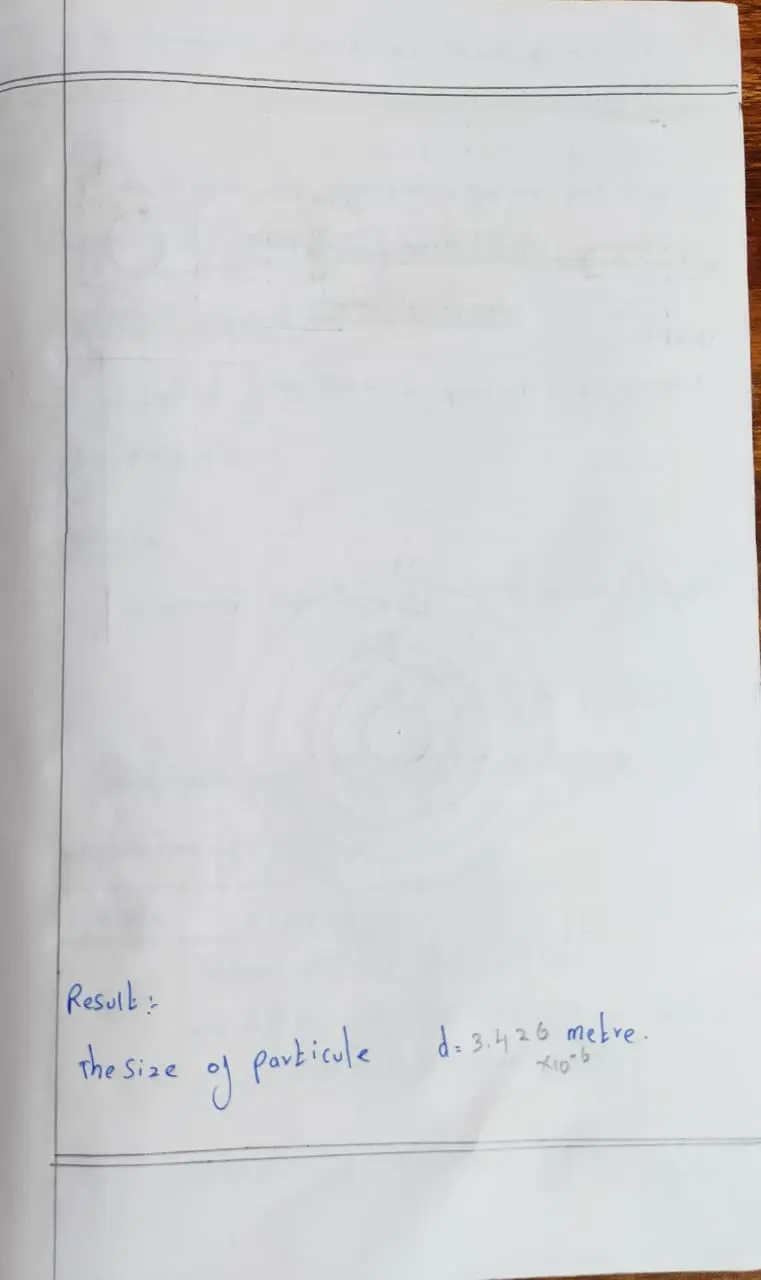 Result :-
The size of particule d = 3.426 metre.
×10⁻⁶